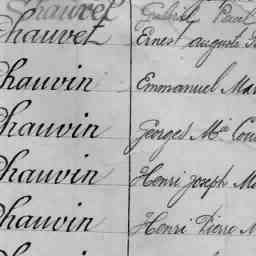 Chauvet Gabriel Paul
Chauvet Ernest Auguste
Chauvin Emmanuel Mar
Chauvin Georges Mie
Chauvin Henri Joseph M
Chauvin Henri Pierre M